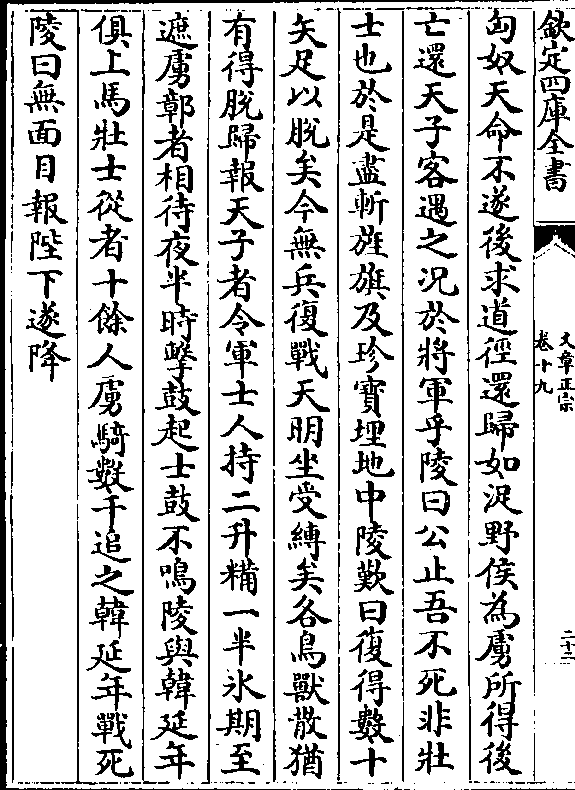 欽定四庫全書
文章正宗
卷十九
二十二
匈奴天命不遂後求道徑還歸如浞野侯為虜所得後
亡還天子客遇之况於將軍乎陵曰公止吾不死非壯
士也於是盡斬旌旗及珍寶埋地中陵歎曰復得數十
矢足以脫矣今無兵復戰天明坐受縛矣各鳥獸散猶
有得脫歸報天子者令軍士人持二升糒一半氷期至
遮虜鄣者相待夜半時擊鼓起士鼓不鳴陵與韓延年
俱上馬壯士從者十餘人虜騎數千追之韓延年戰死
陵曰無面目報陛下遂降